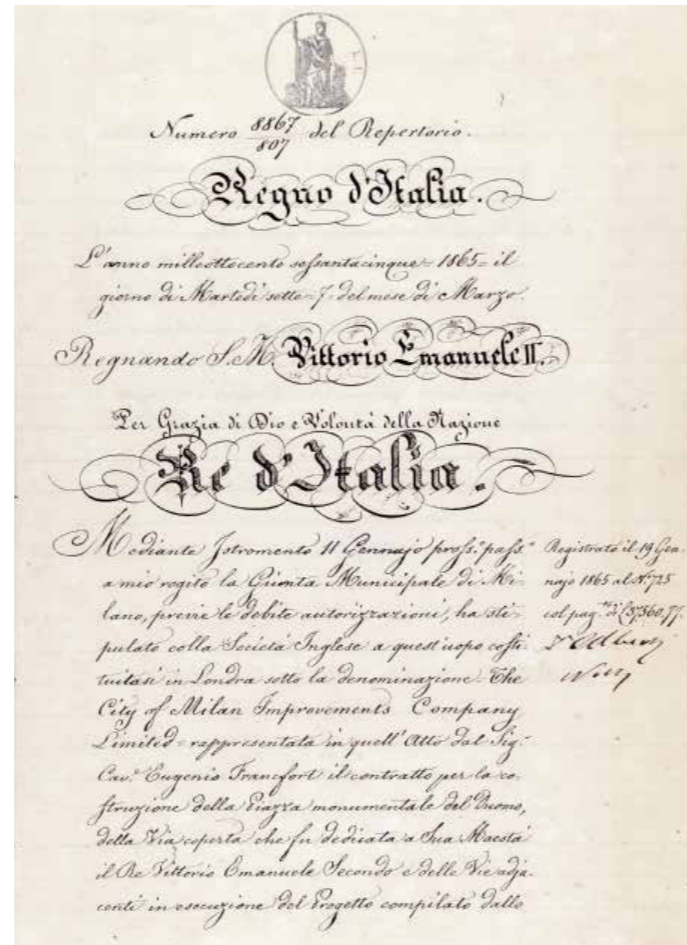 Numero 8867/807 del Repertorio.
Regno d'Italia.
L'anno milleottocento sessantacinque = 1865 = il
giorno di Martedì sette = 7 = del mese di Marzo.
Regnando S. M. Vittorio Emanuele II.
Per Grazia di Dio e Volontà della Nazione
Re d'Italia.
Mediante Istromento 11 Gennajo pross.º pass.º
a mio rogito la Giunta Municipale di Mi-
lano, previe le debite autorizzazioni, ha sti-
pulato colla Società Inglese a quest'uopo costi-
tuitasi in Londra sotto la denominazione = The
City of Milan Improvements Company
Limited = rappresentata in quell'Atto dal Sig.r
Cav.e Eugenio Francfort il contratto per la co-
struzione della Piazza monumentale del Duomo,
della Via coperta che fu dedicata a Sua Maestà
il Re Vittorio Emanuele Secondo e delle Vie adja-
centi in esecuzione del Progetto compilato dallo
Registrato il 19 Gen-
najo 1865 al N.º 725
col pag.to di £ 37560.77.